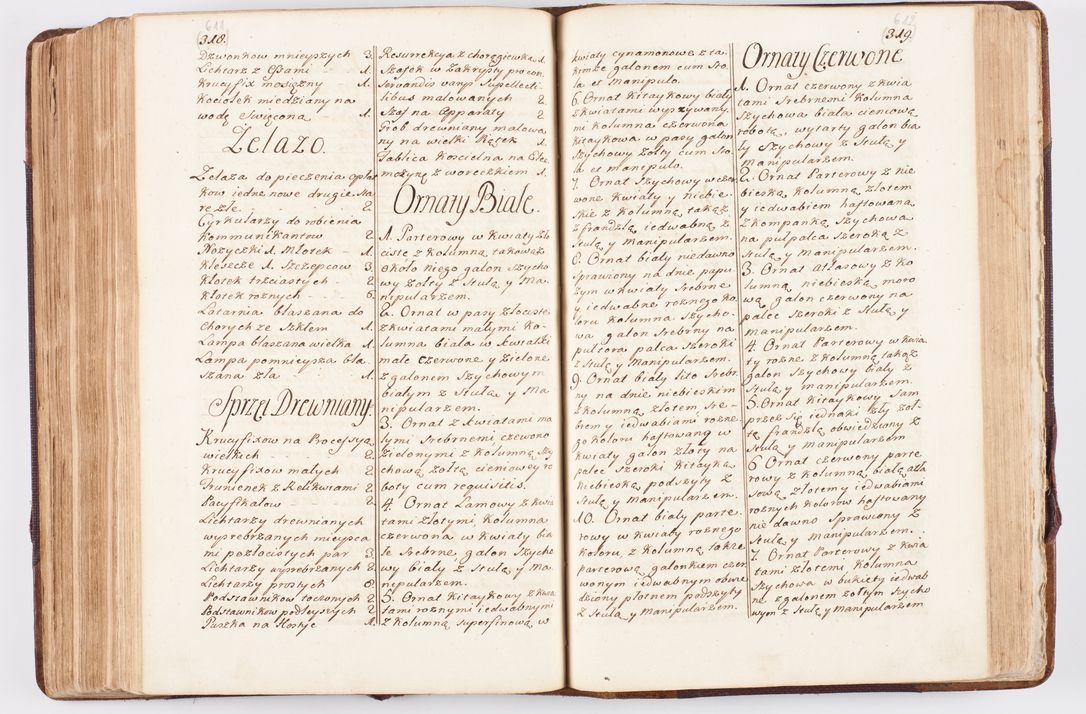 611
318.
Dzwonkow mnieyszych 3.
Lichtarz z Esami - 1.
Krucyfix mosiężny - 1.
Kociołek miedziany na
wodę Swięconą - 1.
Zelazo.
Zelaza do pieczenia opłat
kow iedne nowe drugie Sta
re złe - 2.
Cyrkularzy do robienia
Kommunikantow 2
Nozyczki 1. Młotek - 1.
Kleszcze 1. Szczepcow 3.
Kłotek trzciastych - 2
Kłotek roznych - 6.
Latarnia blaszana do
chorych ze Szkłem 1.
Lampa blaszana wielka 1.
Lampa pomnieysza bla
szana zła 1.
Sprzęt Drewniany.
Krucyfixow na Processyą
wielkich - 2
Krucyfixow małych 2
Trunienek z Relikwiami 2
Pacyfikałow 2
Lichtarzy drewnianych
wysrebrzanych mieysca
mi pozłocistych par 3.
Lichtarzy wysrebrzanych 2
Lichtarzy prostych 8.
Podstawnikow toczonych 2
Podstawnikow podleyszych 2
Puszka na Hostye 1.
Resurrekcya z choręgiewką 1.
Szafek w Zakrystyi pro con
servandis varyi Supellecti
libus malowanych 2.
Szaf na Apparaty 2.
Grob drewniany malowa
ny na wielki Piątek 1.
Tablica koscielna na Elee
mozynę z woreczkiem 1.
Ornaty Białe.
1. Parterowy w kwiaty zło
ciste z kolumną takowąz
około niego galon szycho
wy zołty z Stułą y Ma
nipularzem.
2. Ornat w pasy złociste
z kwiatami małymi ko-
lumna biała w kwiatki
małe czerwone y zielone
z galonem szychowym
białym z Stułą y Ma
nipularzem.
3. Ornat z kwiatami ma
łymi Srebrnemi czerwono
zielonymi z kolumną szy
chową zołtą cieniowey ro
boty cum requisitis.
4. Ornat Lamowy z kwia
tami złotymi, kolumna
czerwona w kwiaty bia
łe srebrne galon szycho
wy biały z Stułą y Ma
nipularzem.
5. Ornat kitaykowy z kwia
tami roznymi iedwabnymi
z kolumną superfinową w
612
319.
kwiaty cynamonowe z ta
kimze galonem cum Sto
la et Manipulo.
6. Ornat kitaykowy biały
z kwiatami wyszywany
mi kolumna czerwona
kitaykowa w pasy galon
szychowy zołty cum Sto
la et manipulo.
7. Ornat szychowy w czer
wone kwiaty y niebie
skie z kolumną takąz
z frandzlą iedwabną z
Stułą y Manipularzem.
8. Ornat biały niedawno
sprawiony na dnie papu
zym w kwiaty srebrne
y iedwabne roznego ko
loru kolumna szycho-
wa galon srebrny na
pułtora palca szeroki
z Stułą y Manipularzem.
9. Ornat biały lito srebr
ny na dnie niebieskim
z kolumną złotem sre-
brem y iedwabiami rozne
go koloru haftowaną w
kwiaty galon złoty na
palec szeroki kitayką
niebieską podszyty z
Stułą y Manipularzem.
10. Ornat biały parte
rowy w kwiaty roznego
koloru, z kolumną także
parterową galonkiem czer
wonym iedwabnym obwie
dziony płotnem podszyty
z Stułą y Manipularzem.
Ornaty Czerwone
1. Ornat czerwony z kwia
tami srebrnemi kolumna
szychowa biała cieniową
robotą, wytarty galon bia
ły szychowy z Stułą y
Manipularzem.
2. Ornat Parterowy z nie
bieską kolumną złotem
y iedwabiem haftowaną
z kompanką szychową
na pułpalca szeroką z
Stułą y Manipularzem.
3. Ornat Atłasowy z ko
lumną niebieską moro
wą galon czerwony na
palec szeroki z Stułą y
Manipularzem.
4. Ornat Parterowy w kwia
ty rozne z kolumną takąz
galon szychowy biały z
Stułą y manipularzem.
5. Ornat kitaykowy sam
przez się iednaki zły zoł-
tą frandzlą obwiedziony z
Stułą y Manipularzem
6 Ornat czerwony parte
rowy z kolumną białą atła
sową złotem y iedwabiami
roznych kolorow haftowany
nie dawno sprawiony z
Stułą y manipularzem.
7. Ornat Parterowy z kwia
tami złotemi kolumna
szychowa w bukiety iedwab
ne z galonem zołtym szycho
wym z Stułą y Manipularzem